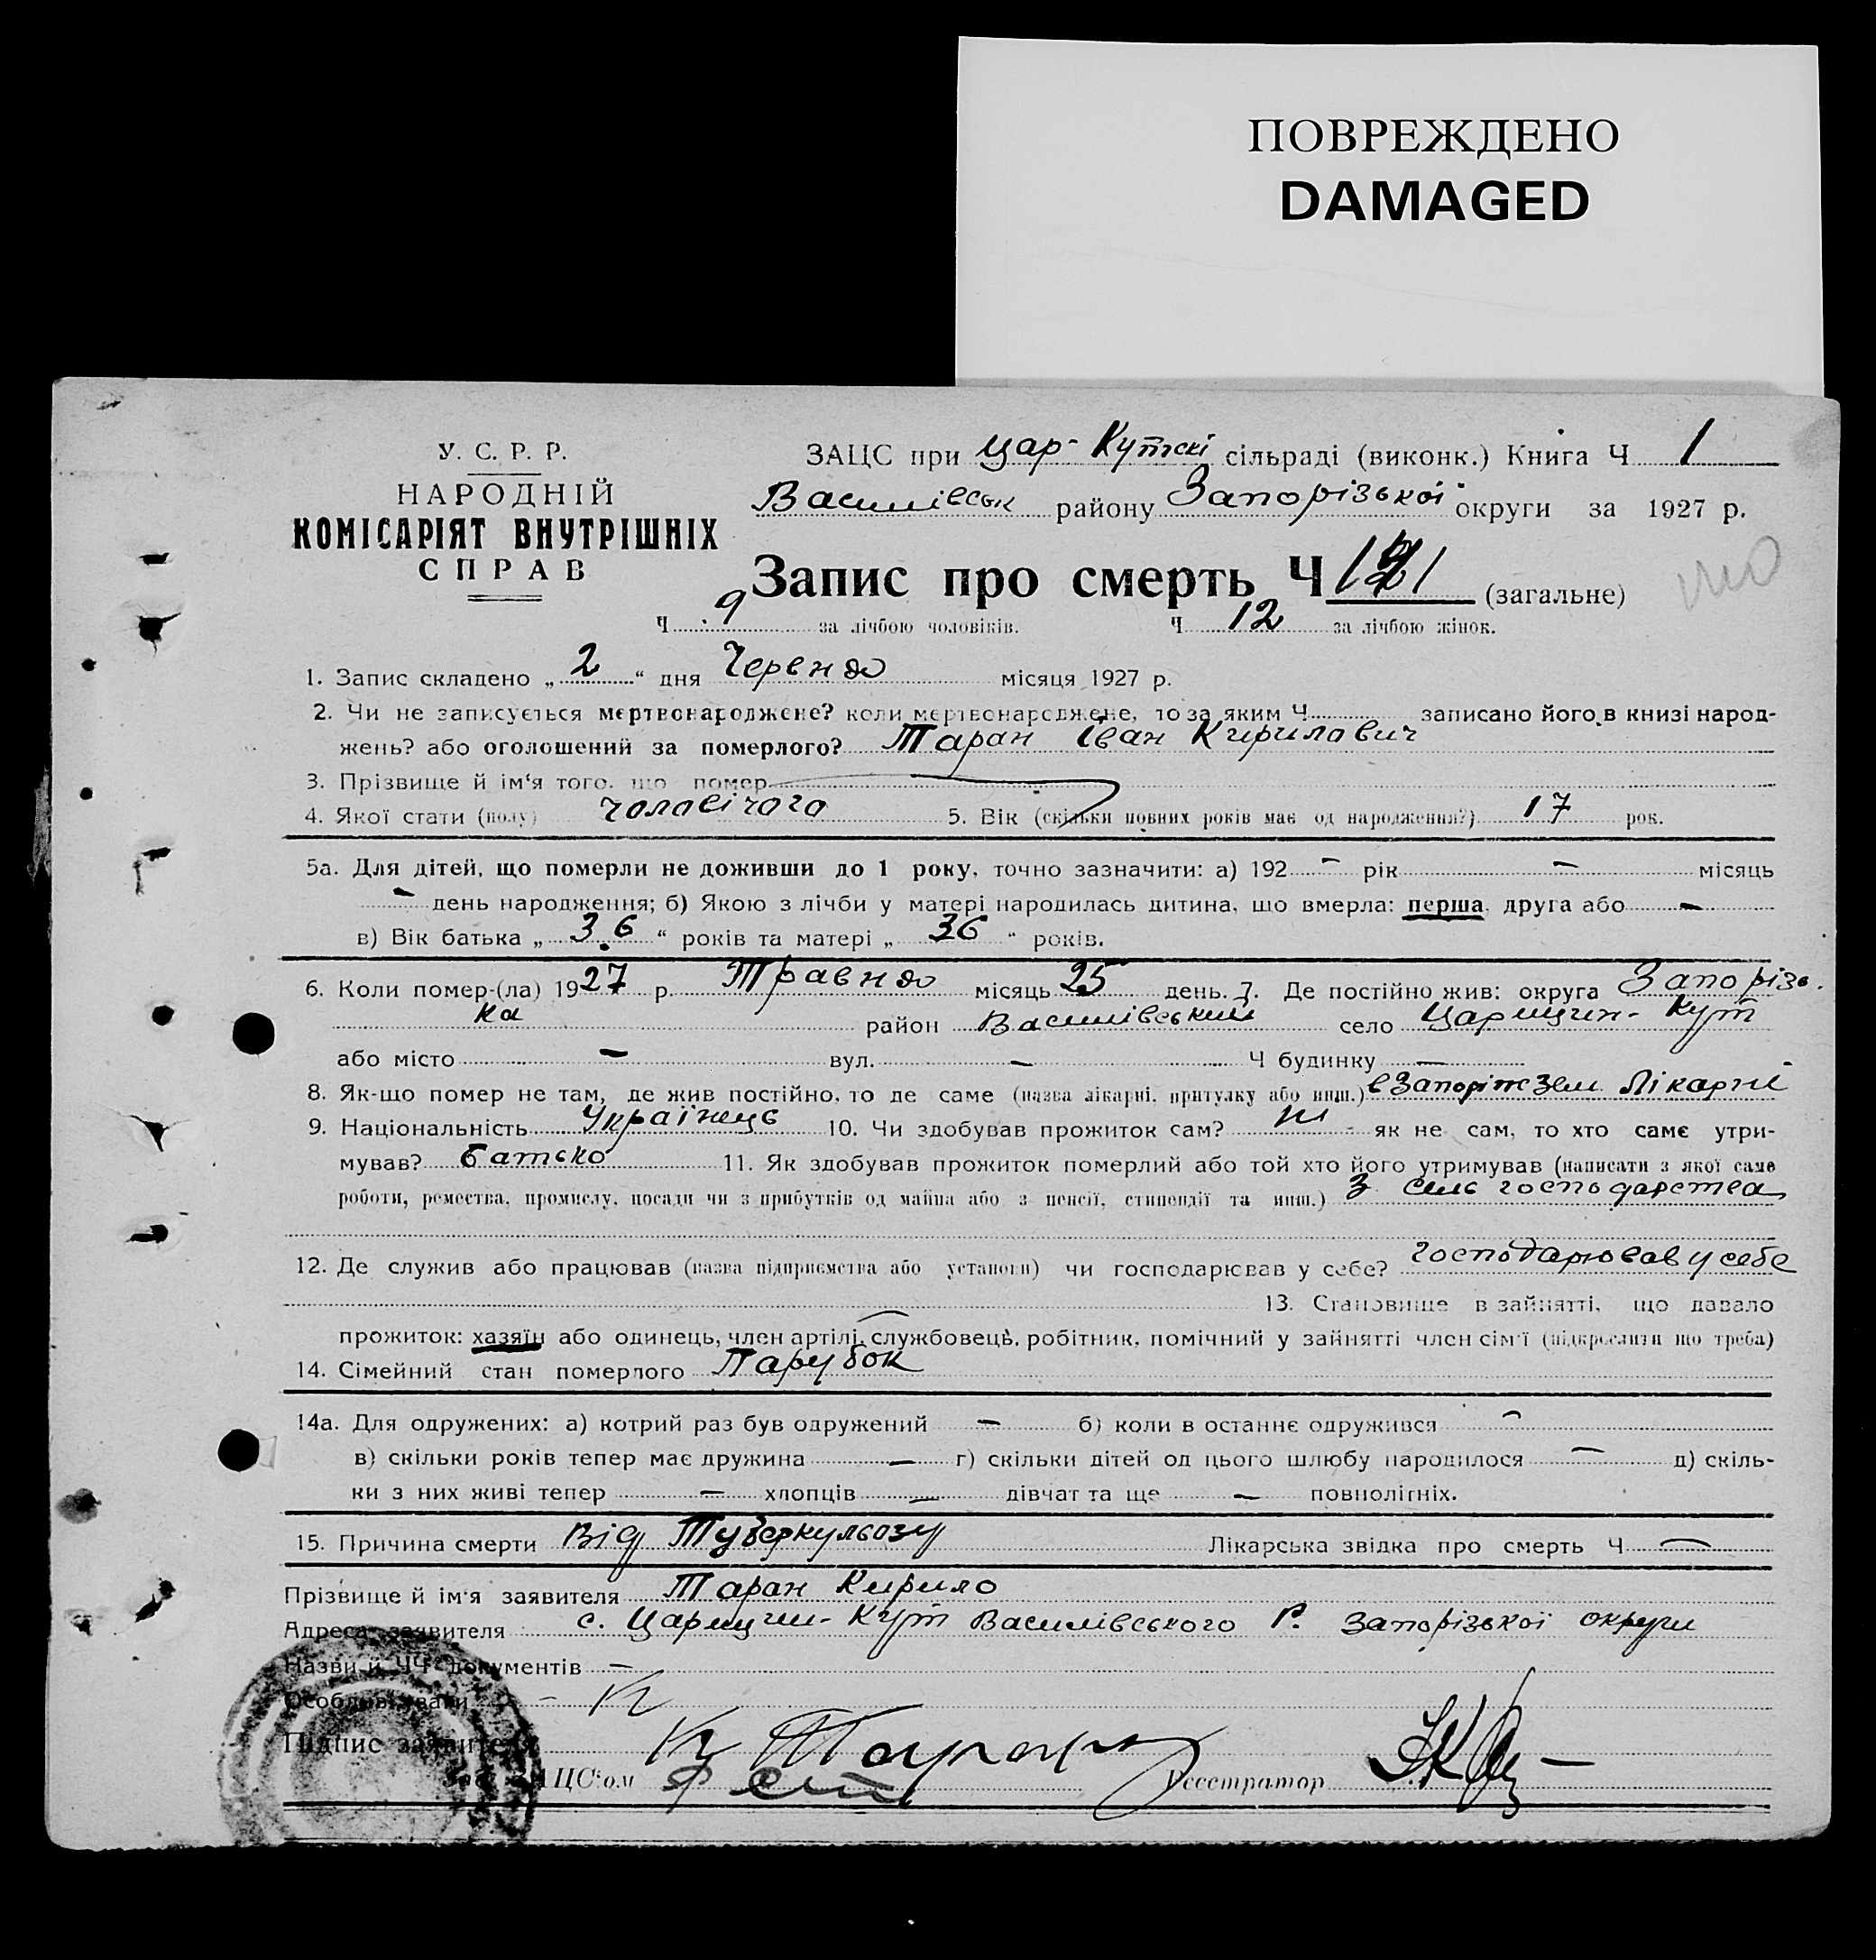 ПОВРЕЖДЕНО
DAMAGED
У. С. Р. Р.
НАРОДНІЙ
КОМІСАРІЯТ ВНУТРІШНІХ
СПРАВ
ЗАЦС при Цар-Кутскі сільраді (виконк.) Книга Ч 1
Василівськ району Запорізької округи за 1927 р.
Запис про смерть Ч (загальне)
Ч 9 за лічбою чоловіків. Ч 12 за лічбою жінок.
1. Запис складено „ 2 “ дня Червня місяця 1927 р.
2. Чи не записується мертвонароджене? коли мертвонароджене, то за яким Ч записано його в книзі народ-
жень? або оголошений за померлого? Таран Іван Кирилович
3. Прізвище й ім'я того, що помер
4. Якої стати (полу) чоловічого 5. Вік (скільки повних років має од народження?) 17 рок.
5а. Для дітей, що померли не доживши до 1 року, точно зазначити: а) 192 – рік – місяць
– день народження; б) Якою з лічби у матері народилась дитина, що вмерла: перша, друга або –
в) Вік батька „ 36 “ років та матері „ 36 “ років.
6. Коли помер-(ла) 1927 р. Травня місяць 25 день. 7. Де постійно жив: округа Запорізь-
ка район Василівський село Царицин-Кут
або місто – вул. – Ч будинку –
8. Як-що помер не там, де жив постійно, то де саме (назва лікарні, притулку або инш.) в Запоріж Зем Лікарні
9. Національність Українець 10. Чи здобував прожиток сам? ні як не сам, то хто саме утри-
мував? батько 11. Як здобував прожиток померлий або той хто його утримував (написати з якої саме
роботи, ремества, промислу, посади чи з прибутків од майна або з пенсії, стипендії та инш.) З сель господарства
12. Де служив або працював (назва підприємства або установи) чи господарював у себе? господарював у себе
13. Становище в зайнятті, що давало
прожиток: хазяїн або одинець, член артілі, службовець, робітник, помічний у зайнятті член сім'ї (підкреслити що треба)
14. Сімейний стан померлого Парубок
14а. Для одружених: а) котрий раз був одружений – б) коли в останнє одружився –
в) скільки років тепер має дружина – г) скільки дітей од цього шлюбу народилося – д) скіль-
ки з них живі тепер – хлопців – дівчат та ще – повнолітніх.
15. Причина смерти Від Туберкульозу Лікарська звідка про смерть Ч –
Прізвище й ім'я заявителя Таран Кирило
Адреса заявителя с. Царицин-Кут Василівського Р. Запорізької округи
Назви й ЧЧ документів –
Особливі уваги –
Підпис заявителя К Таран
Зав. ЗАЦС'ом Реєстратор